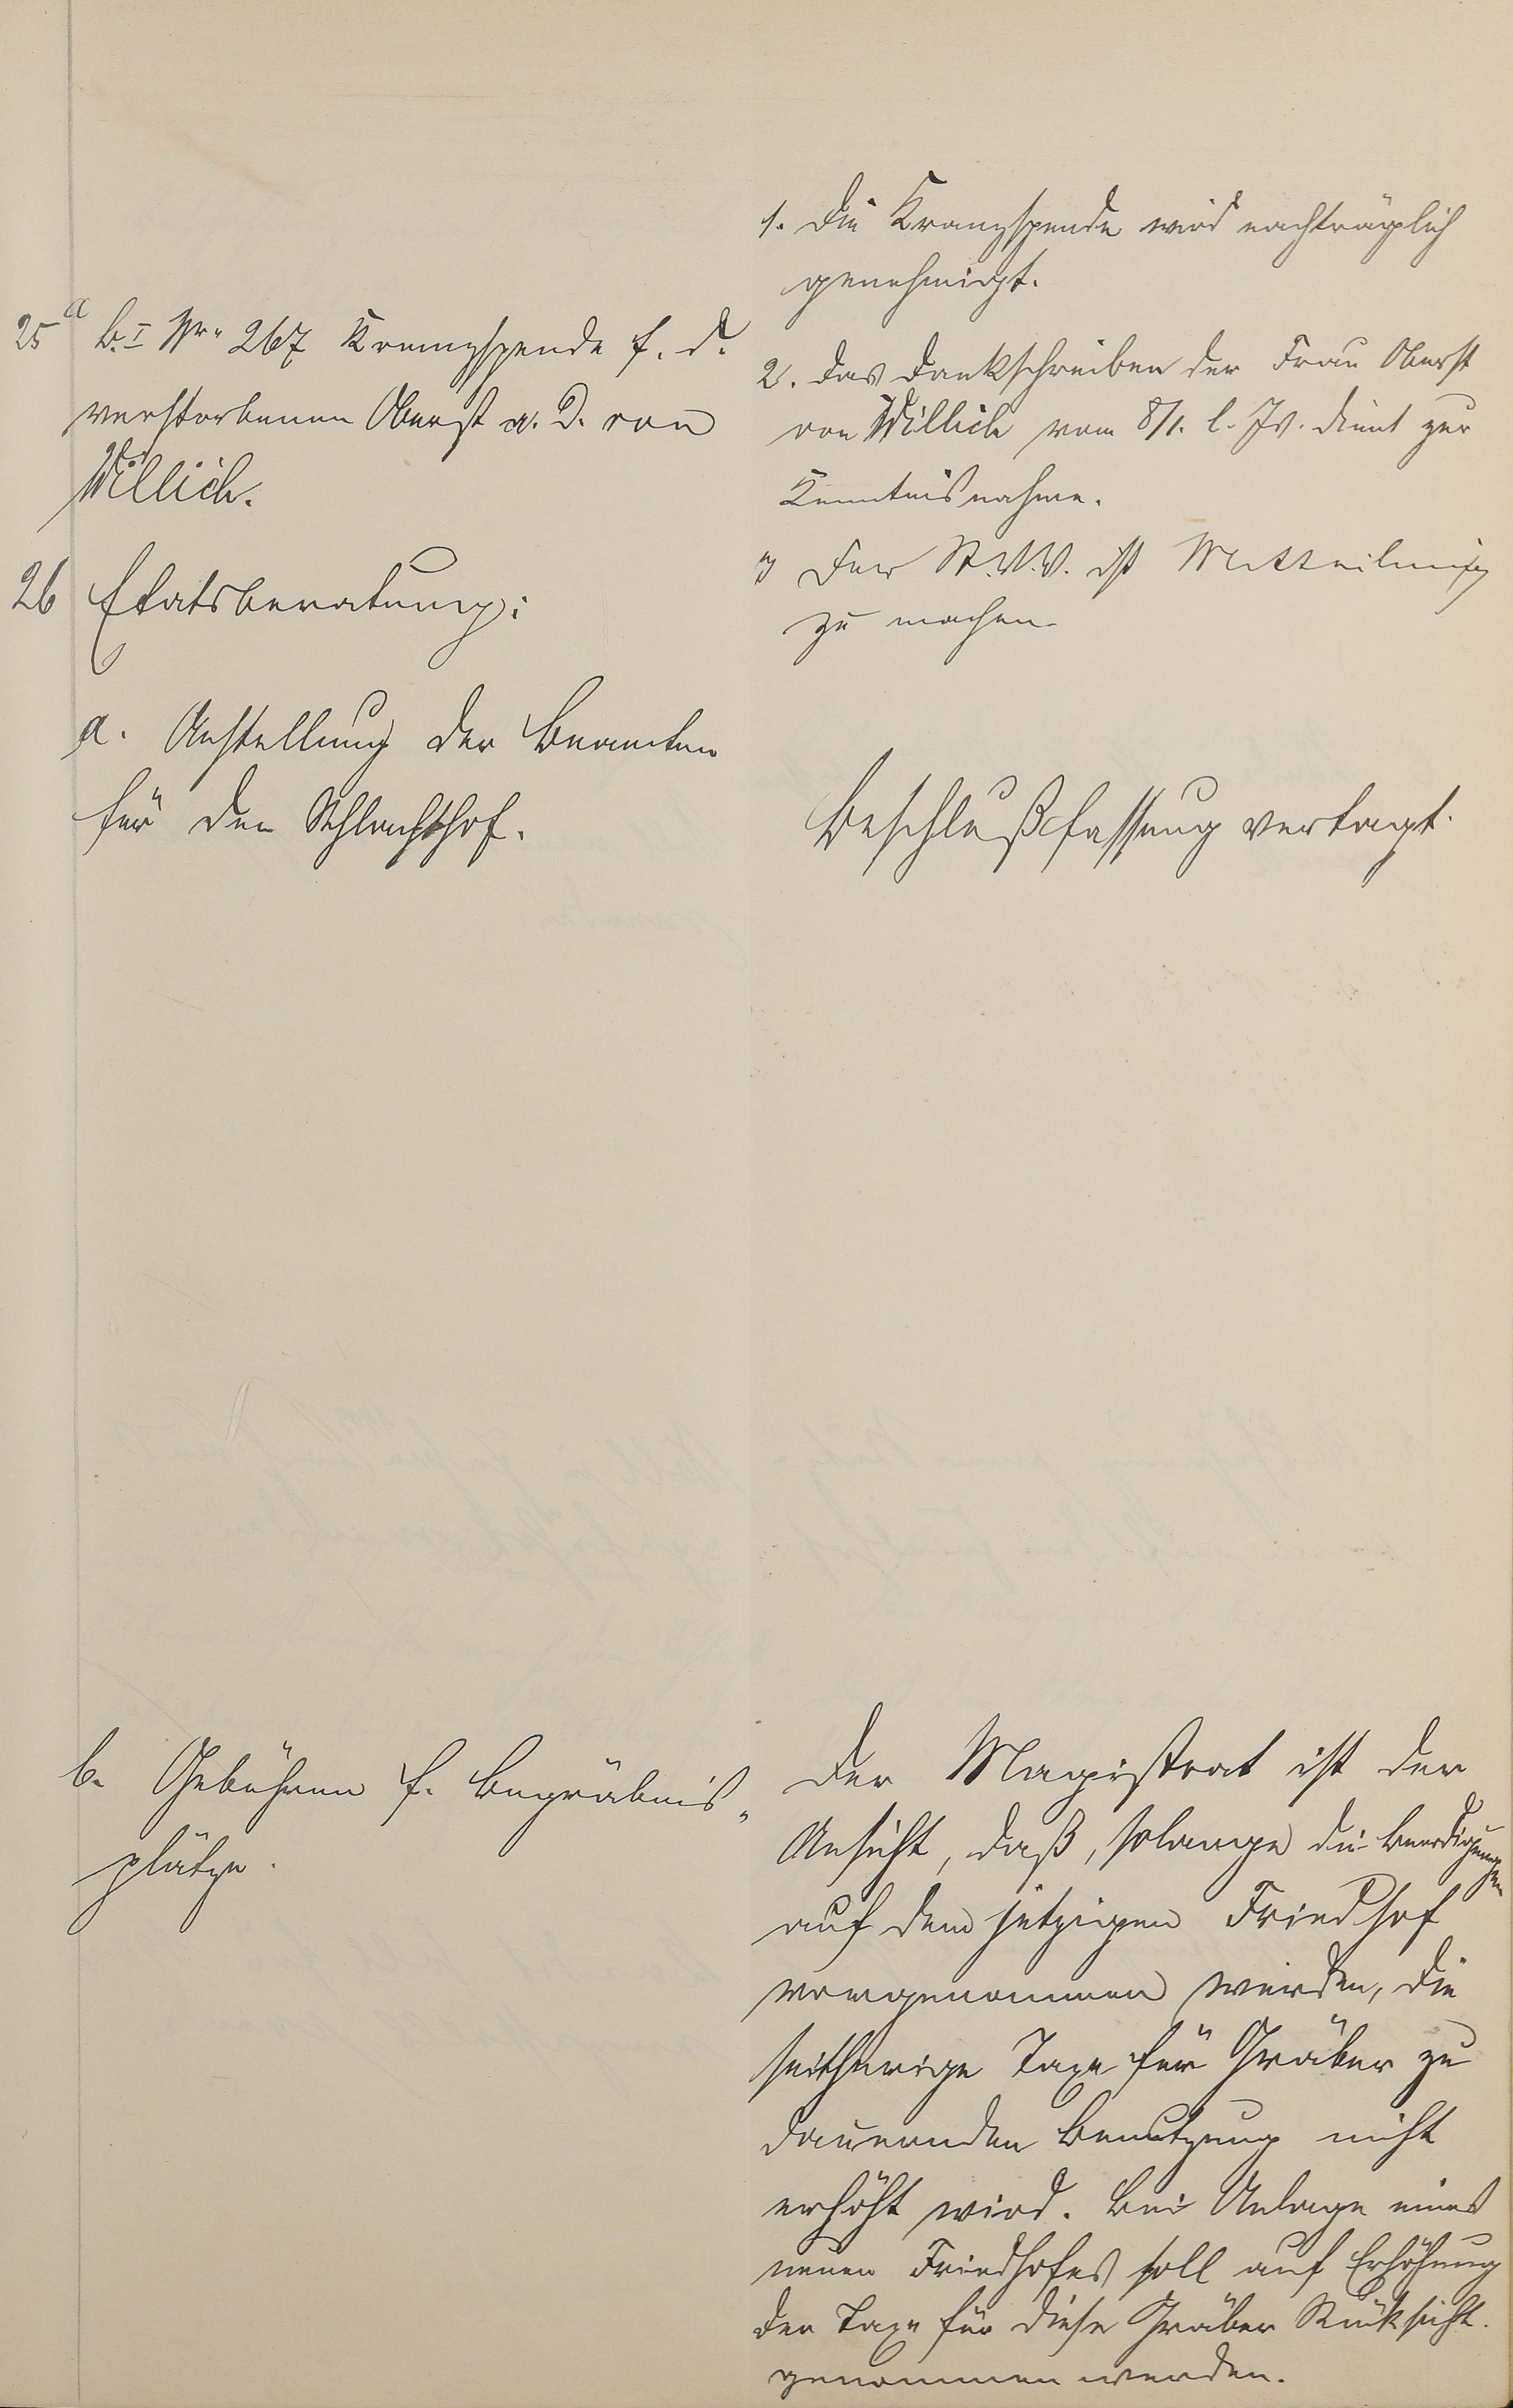 25a B.I Nr. 267 Kranzspende f. d.
verstorbenen Oberst a. D. von
Willich.
1. Die Kranzspende wird nachträglich
genehmigt.
2. Das Dankschreiben der Frau Oberst
von Willich vom 8/1. l. Js. dient zur
Kenntnisnahme.
3) Der St.V.V. ist Mitteilung
zu machen.
26 Etatsberatung:
a. Anstellung der Beamten
für den Schlachthof.
Beschlußfassung vertagt.
b. Gebühren f. Begräbnis-
plätze.
Der Magistrat ist der
Ansicht, daß, solange die Beerdigungen
auf dem jetzigen Friedhof
vorgenommen werden, die
seitherige Taxe für Gräber zu
dauernden Benutzung nicht
erhöht wird. Bei Anlage eines
neuen Friedhofes soll auf Erhöhung
der Taxe für diese Gräber Rücksicht
genommen werden.